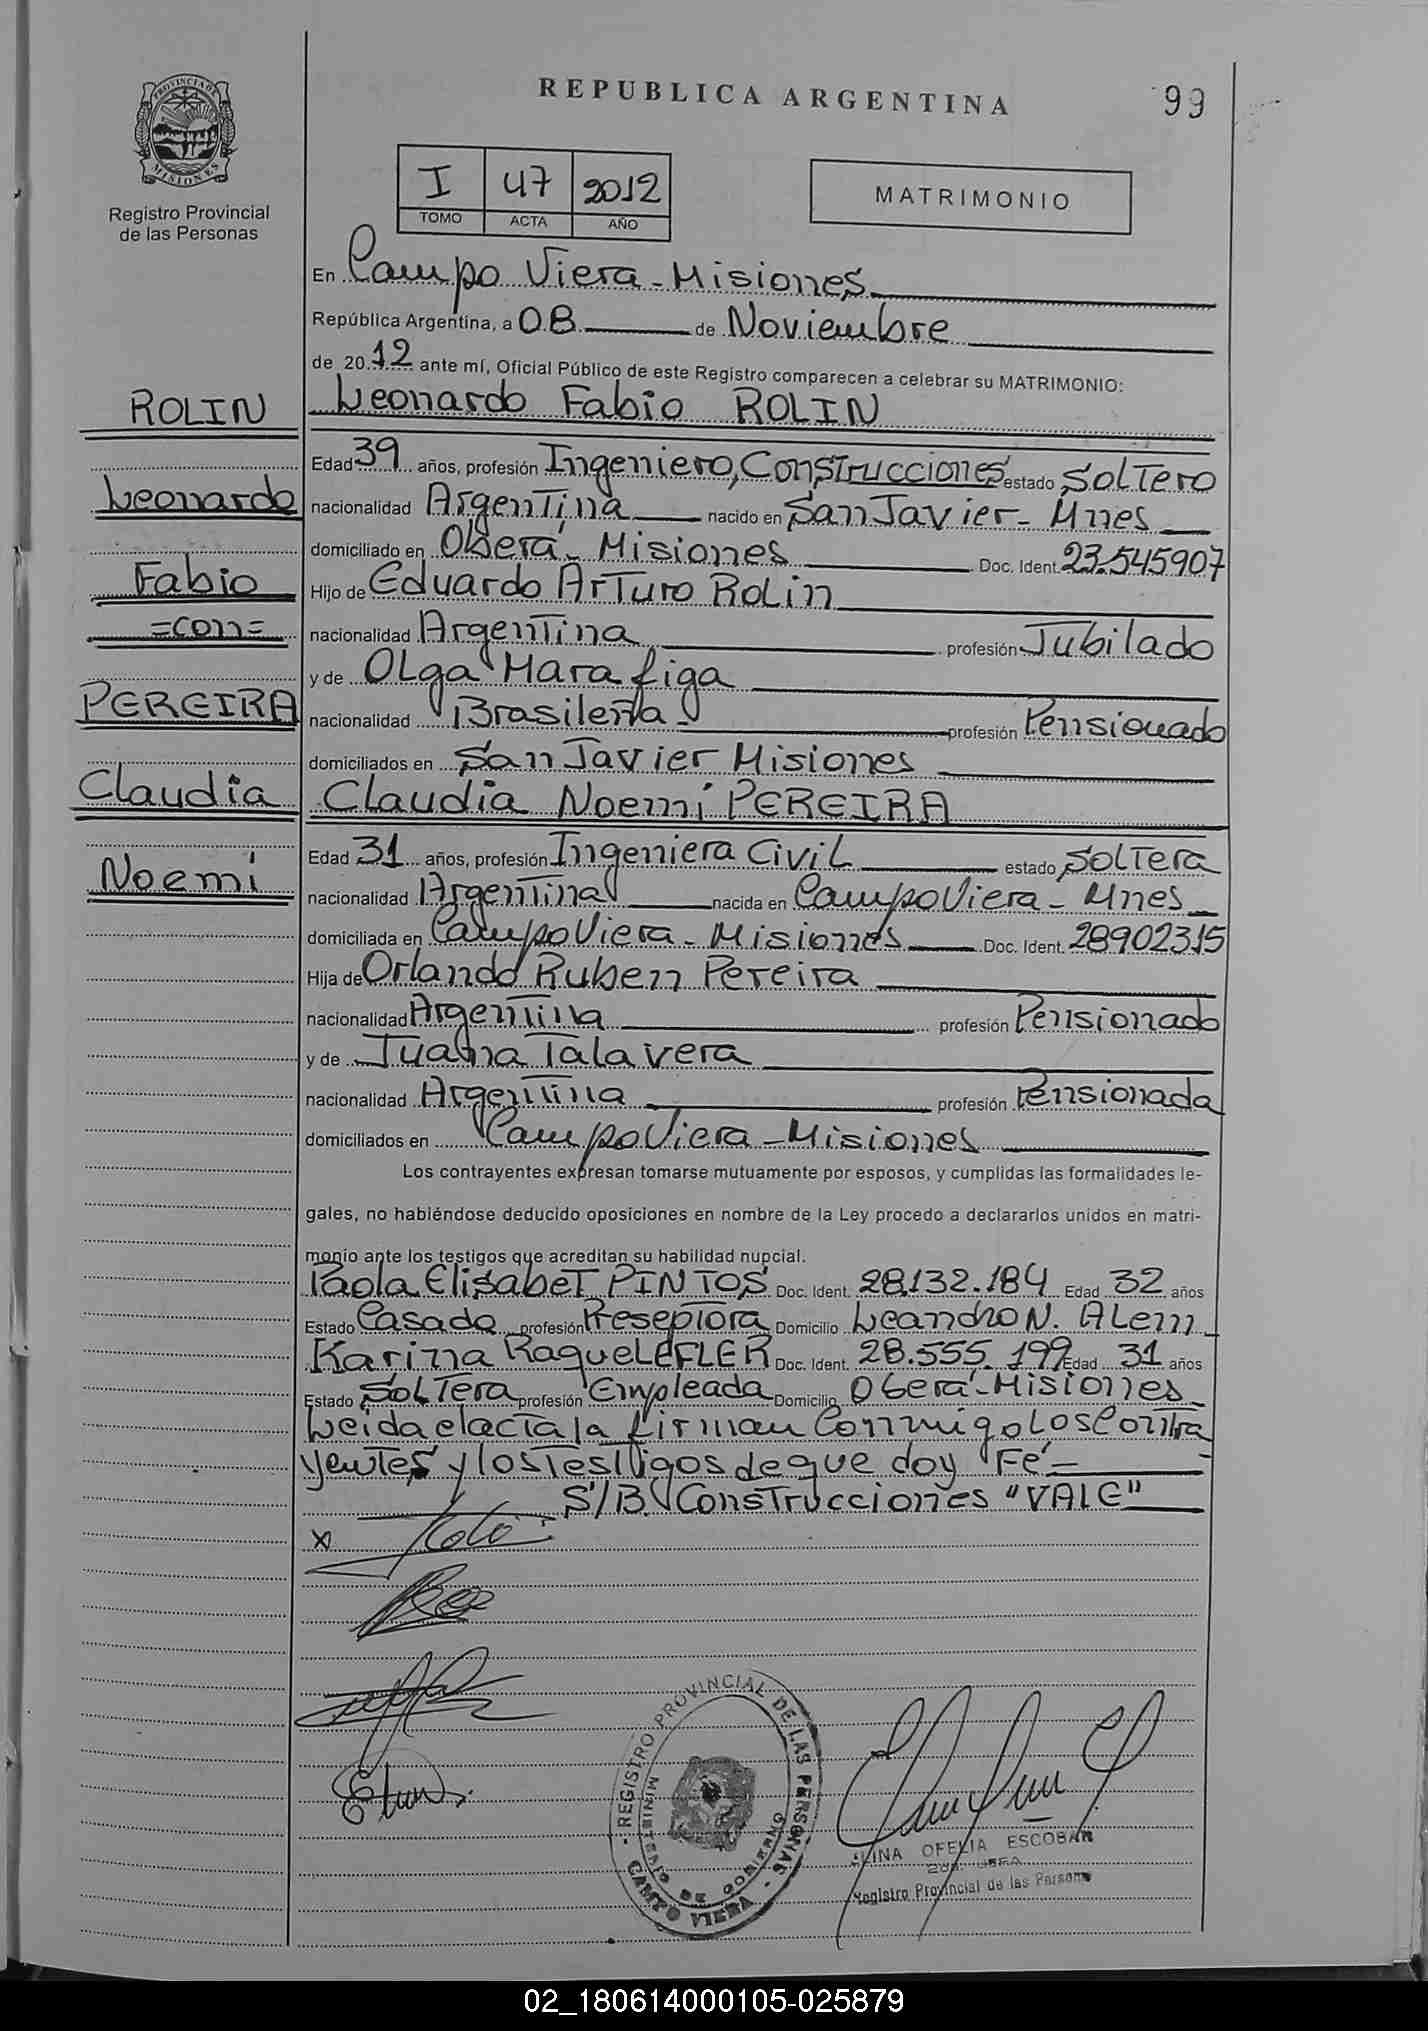 REPUBLICA ARGENTINA
99
PROVINCIA DE
MISIONES
Registro Provincial
de las Personas
I 47 2012
TOMO ACTA AÑO
MATRIMONIO
En Campo Viera - Misiones
República Argentina, a 08 de Noviembre
de 2012 ante mí, Oficial Público de este Registro comparecen a celebrar su MATRIMONIO:
ROLIN
Leonardo
Fabio
=con=
PEREIRA
Claudia
Noemí
Leonardo Fabio ROLIN
Edad 39 años, profesión Ingeniero, Construcciones estado Soltero
nacionalidad Argentina nacido en San Javier - Mnes
domiciliado en Oberá - Misiones Doc. Ident. 23.545907
Hijo de Eduardo Arturo Rolin
nacionalidad Argentina profesión Jubilado
y de Olga Mara figa
nacionalidad Brasileña - profesión Pensionado
domiciliados en San Javier Misiones
Claudia Noemí PEREIRA
Edad 31 años, profesión Ingeniera Civil estado Soltera
nacionalidad Argentina nacida en Campo Viera - Mnes
domiciliada en Campo Viera - Misiones Doc. Ident. 28902315
Hija de Orlando Ruben Pereira
nacionalidad Argentina profesión Pensionado
y de Juana Talavera
nacionalidad Argentina profesión Pensionada
domiciliados en Campo Viera - Misiones
Los contrayentes expresan tomarse mutuamente por esposos, y cumplidas las formalidades le-
gales, no habiéndose deducido oposiciones en nombre de la Ley procedo a declararlos unidos en matri-
monio ante los testigos que acreditan su habilidad nupcial.
Paola Elisabet PINTOS Doc. Ident. 28.132.184 Edad 32 años
Estado Casada profesión Preseptora Domicilio Leandro N. Alem
Karina Raquel EFLER Doc. Ident. 28.555.199 Edad 31 años
Estado Soltera profesión Empleada Domicilio Oberá - Misiones
Leida el acta la firman Conmigo Los Contra
yentes y los Testigos de que doy Fé -
S/B Construcciones "VALE"
x
- REGISTRO PROVINCIAL DE LAS PERSONAS -
MINISTERIO DE GOBIERNO
CAMPO VIERA
OFELIA ESCOBAR
Registro Provincial de las Personas
02_180614000105-025879